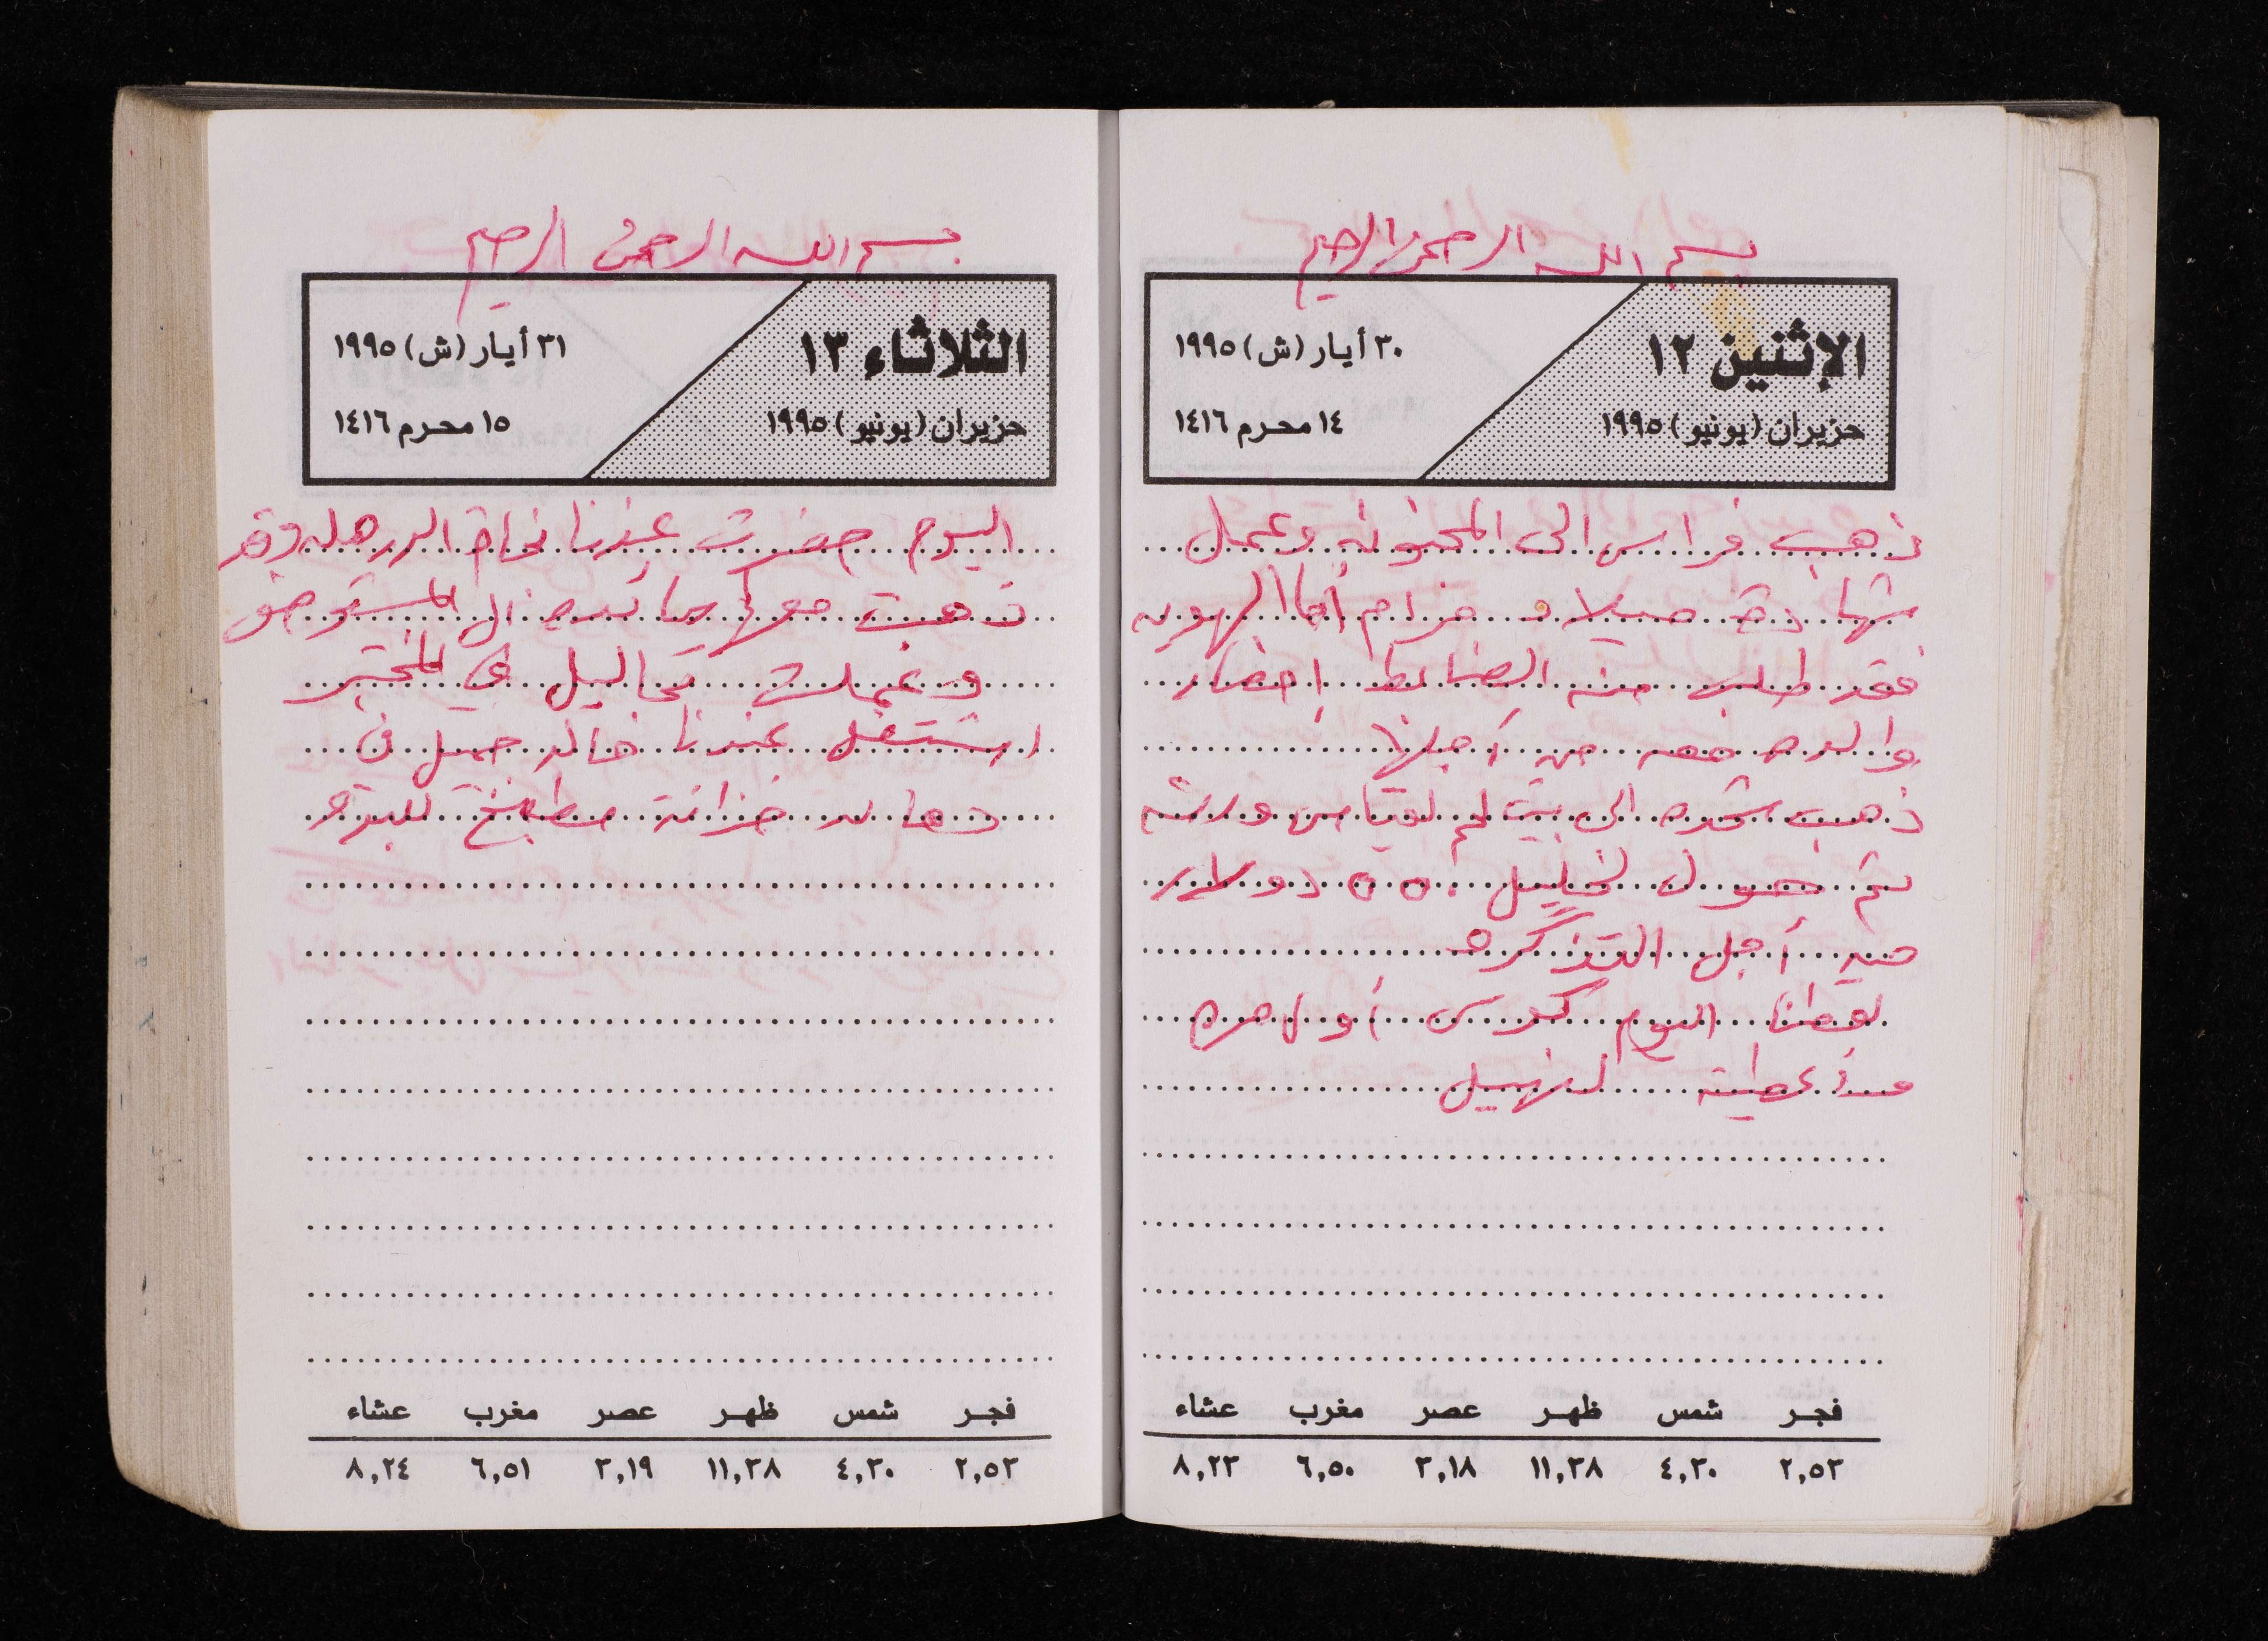 بسم الله الرحمن الرحيم
الإثنين ١٢
٣٠ أيار (ش) ١٩٩٥
حزيران (يونيو) ١٩٩٥
١٤ محرم ١٤١٦
ذهب فراس الى وعمل
شهادة ميلاد و حزام أما الهويه
فقد طلب منه الضابط إحضار
والده معه من أجلها
ذهب شحده الى بيت لحم
ثم حول لخليل ٥٥٠ دولار
من أجل التذكره
لقطنا اليوم أول مره
فجر شمس ظهر عصر مغرب عشاء
٢,٥٢ ٤,٣٠ ١١,٣٨ ٣,١٨ ٦,٥٠ ٨,٢٣
بسم الله الرحمن الرحيم
الثلاثاء ١٣
٣١ أيار (ش) ١٩٩٥
حزيران (يونيو) ١٩٩٥
١٥ محرم ١٤١٦
اليوم حضرت عندنا نجاة وقد
ذهبت معها الى المستوصف
وعملت تحاليل في المختبر
اشتغل عندنا خالد جميل في
دهان خزانة مطبخ
فجر شمس ظهر عصر مغرب عشاء
٢,٥٢ ٤,٣٠ ١١,٣٨ ٣,١٩ ٦,٥١ ٨,٢٤